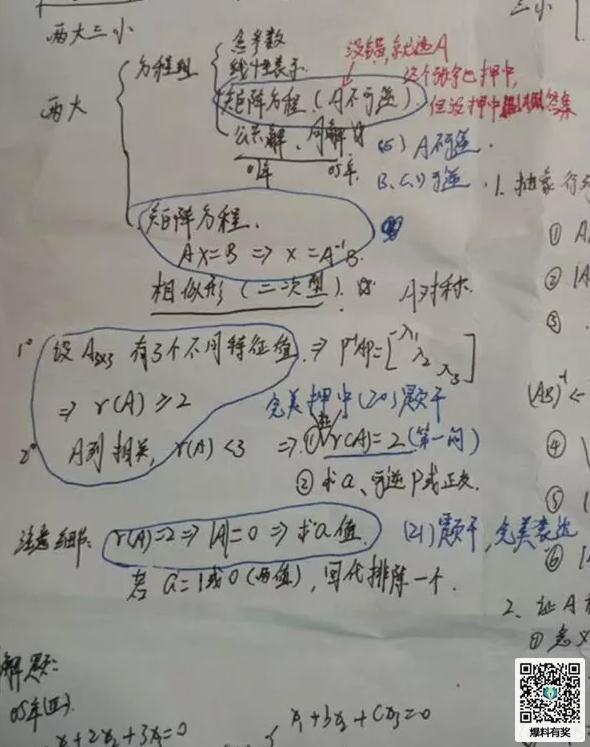 两大三小
两大
方程组
含参数
线性表示
矩阵方程(A不可逆)
公共解、同解
01年 05年
没错,就这A
但没押中
(5) A不可逆.
B、C、D可逆.
矩阵方程.
AX=B ⇒ X=A⁻¹B.
相似形(二次型).
A对称.
1° 设 A₃ₓ₃ 有3个不同特征值 ⇒ P⁻¹AP=[λ₁ λ₂ λ₃]
⇒ r(A)≥2
完美押中(20)题干
2° A列相关, r(A)<3 ⇒ ① r(A)=2 (第一问)
② 求a、可逆P或正交.
注意细节: r(A)=2 ⇒ |A|=0 ⇒ 求a值.
(21)题干,完美表达
若 a=1或0(两值),回代排除一个.
解题:
05年(四).
x₁+2x₂+3x₃=0
x₁+3x₂+Cx₃=0
三小
1. 抽象行
①
②
③
(AB)⁻¹
④
⑤
⑥
2. 证A
① 定义
爆料有奖